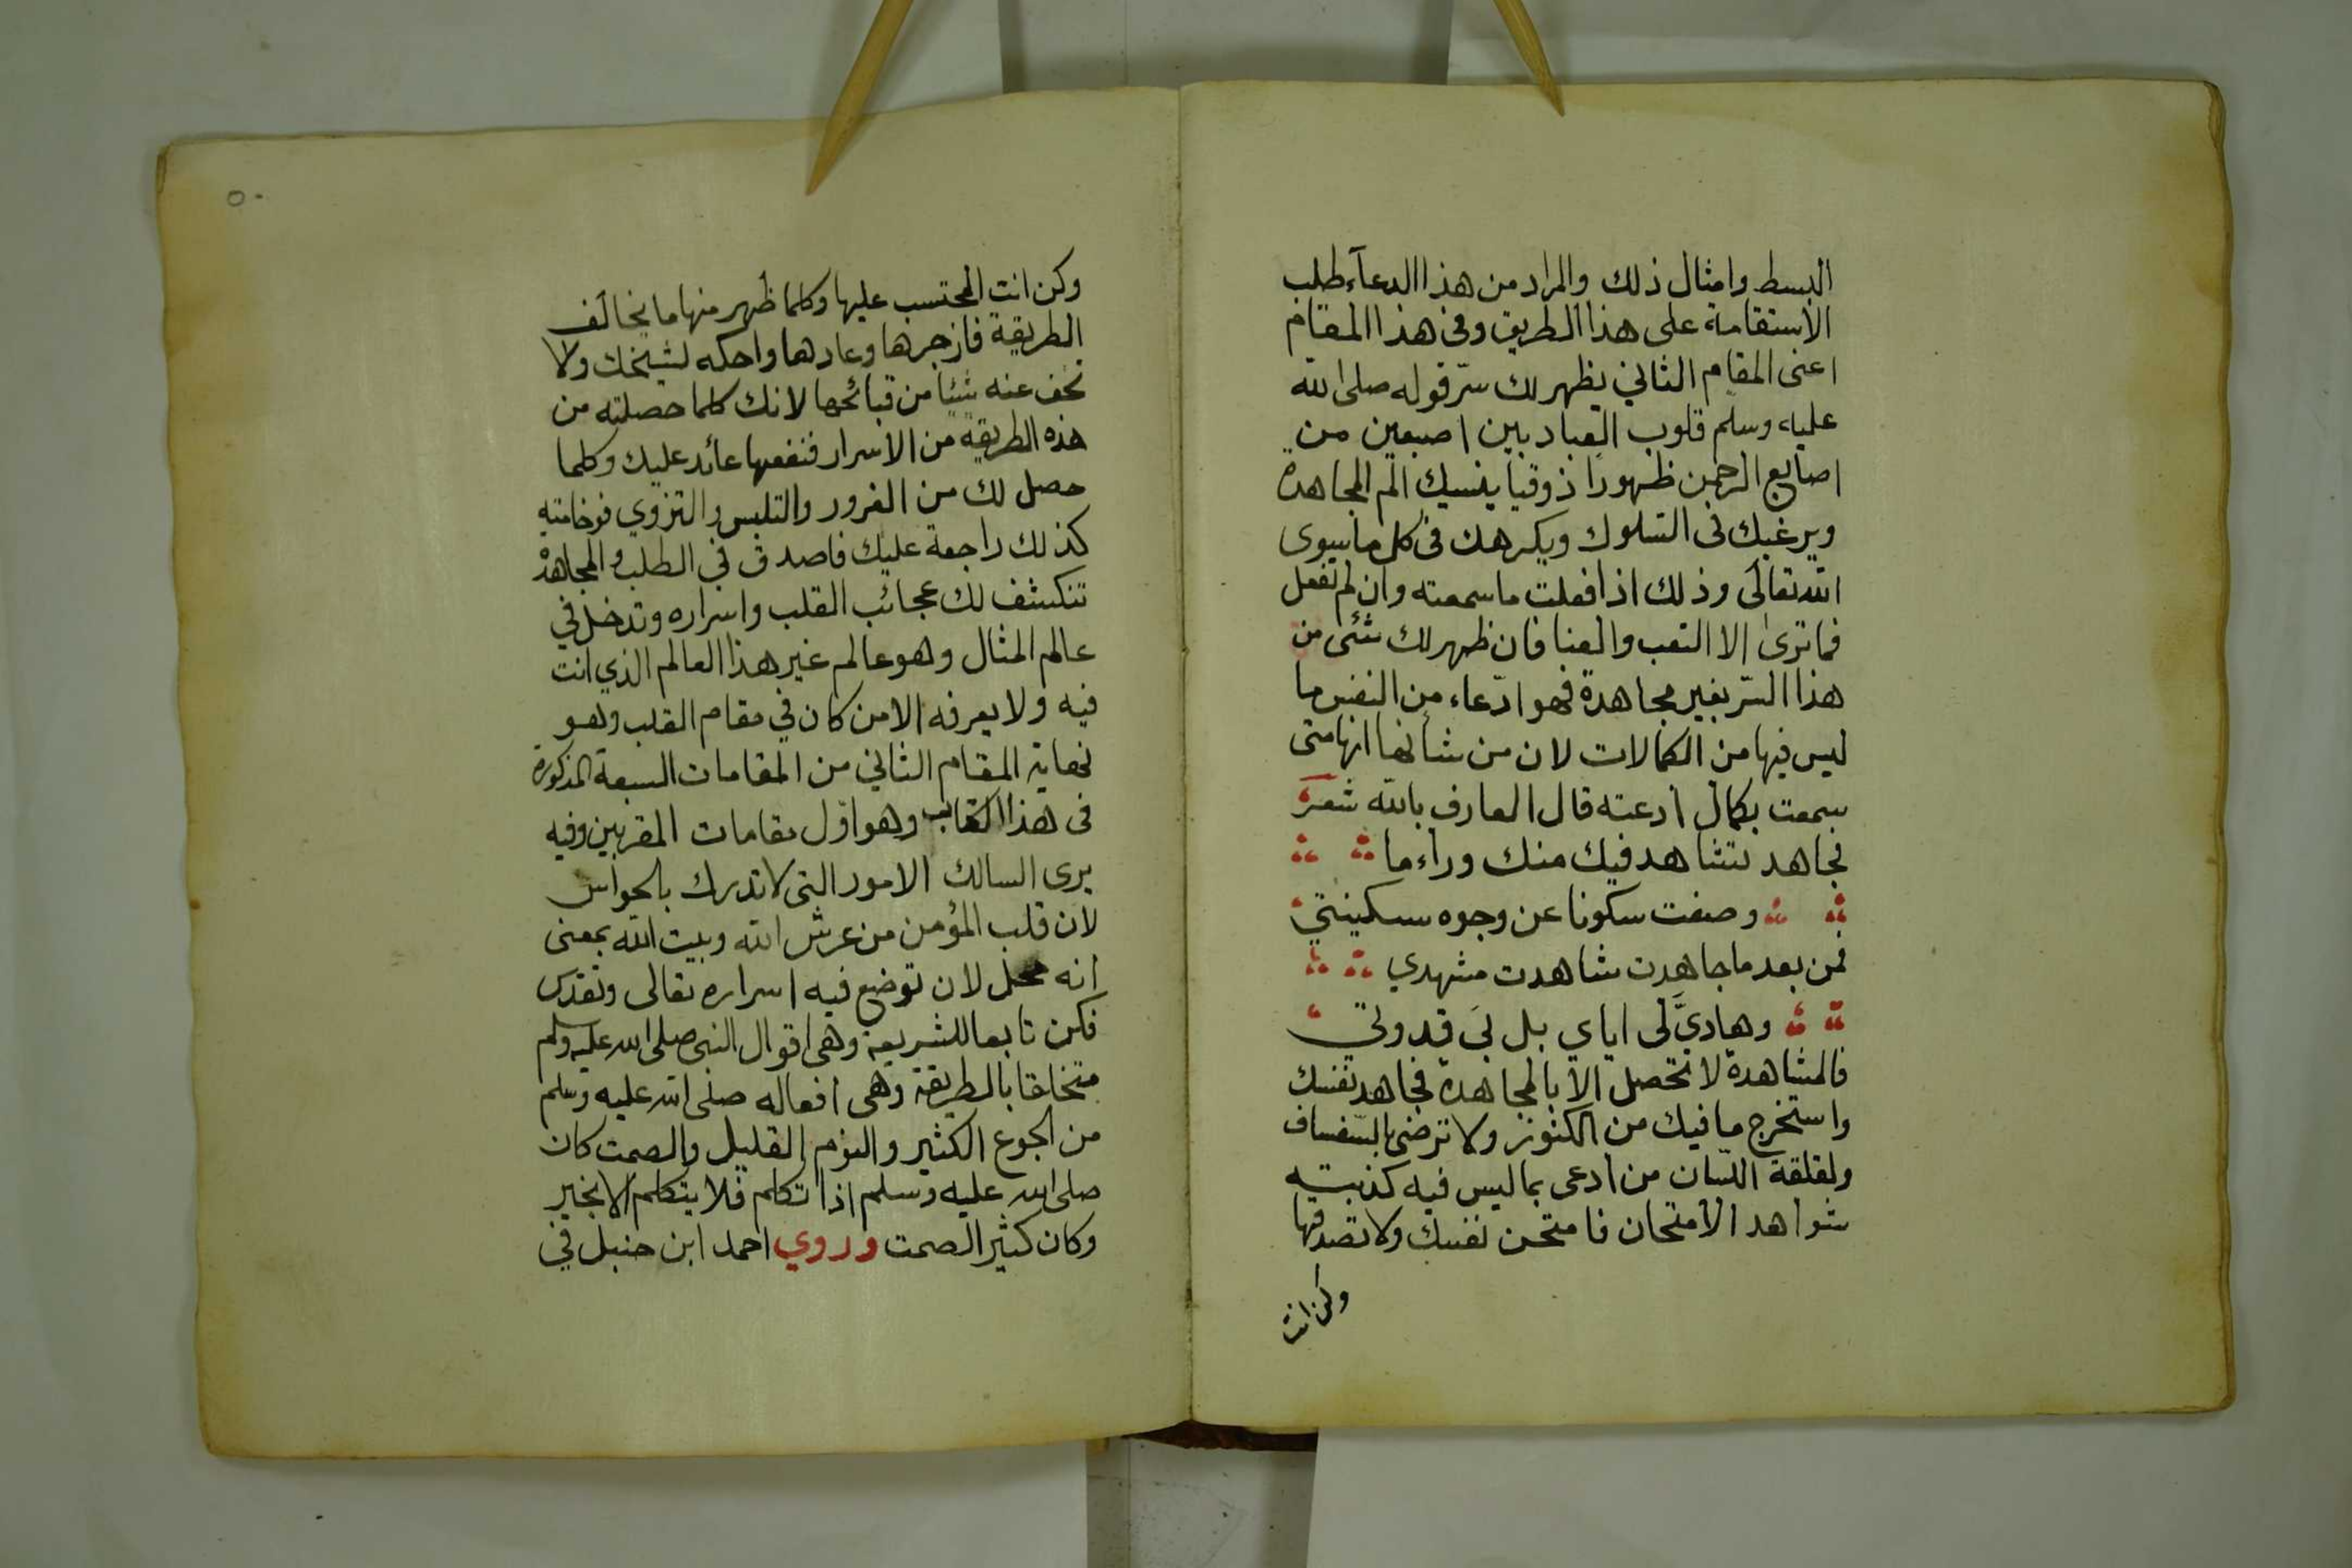 البسط وامثال ذلك والمراد من هذا الدعآء طلب
الاستقامة على هذا الطريق وفى هذا المقام
اعنى المقام الثاني يظهر لك سرّ قوله صلى الله
عليه وسلم قلوب العباد بين اصبعين من
اصابع الرحمن ظهورا ذوقيا ينسيك الم المجاهدة
ويرغبك فى السلوك ويكرهك فى كل ما سوى
الله تعالى وذلك اذا فعلت ما سمعته وان لم تفعل
فما ترى الا التعب والعنا فان ظهر لك شئ من
هذا السّر بغير مجاهدة فهو ادّعاء من النفس ما
ليس فيها من الكمالات لان من شانها انها متى
سمعت بكمال ادعته قال العارف بالله شعر
فجاهد تشاهد فيك منك وراء ما
وصفت سكونا عن وجوه سكينتي
فمن بعد ما جاهدت شاهدت مشهدي
وهاديَّ لى اياي بل بى قدوتي
فالمشاهدة لا تحصل الا بالمجاهدة فجاهد نفسك
واستخرج ما فيك من الكنوز ولا ترضى بالسّفساف
ولقلقة اللّسان من ادعى بما ليس فيه كذبته
شواهد الامتحان فامتحن نفسك ولا تصدقها
وكن انت
٥٠
وكن انت المحتسب عليها وكلما ظهر منها ما يخالف
الطريقة فازجرها وعادها واحكه لشيخك ولا
تخف عنه شيئا من قبائحها لانك كلما حصلته من
هذه الطريقة من الاسرار فنفعها عائد عليك وكلما
حصل لك من الغرور والتلبس والتزوي فوخامته
كذلك راجعة عليك فاصدق فى الطلب والمجاهدة
تنكشف لك عجائب القلب واسراره وتدخل في
عالم المثال وهو عالم غير هذا العالم الذي انت
فيه ولا يعرفه الا من كان في مقام القلب وهو
نهاية المقام الثاني من المقامات السبعة المذكورة
فى هذا الكتاب وهو اوّل مقامات المقربين وفيه
يرى السالك الامور التى لا تدرك بالحواس
لان قلب المؤمن من عرش الله وبيت الله بمعنى
انه محل لان توضع فيه اسراره تعالى وتقدس
فكن تابعا للشريعة وهى اقوال النبى صلى الله عليه وسلم
متخلقا بالطريقة وهى افعاله صلى الله عليه وسلم
من الجوع الكثير والنوم القليل والصمت كان
صلى الله عليه وسلم اذا تكلم فلا يتكلم الا بخير
وكان كثير الصمت وروي احمد ابن حنبل في